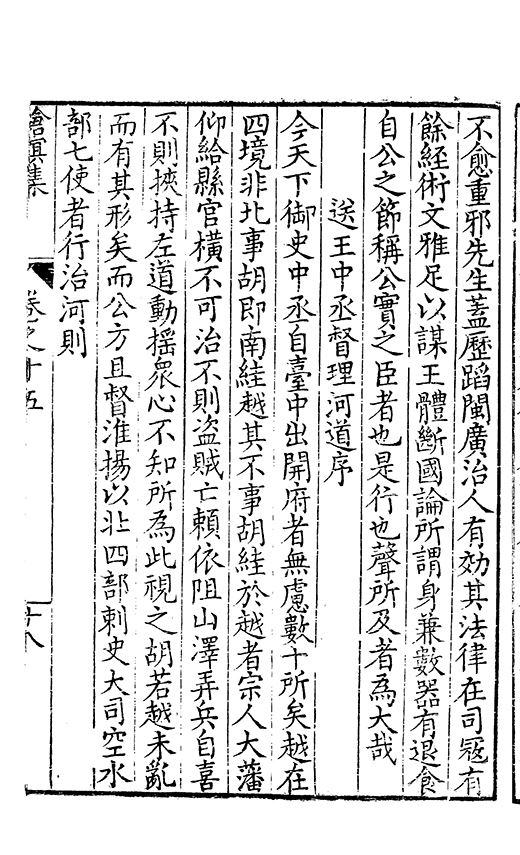 不愈重邪先生蓋歷蹈閩廣治人有効其法律在司寇有
餘經術文雅足以謀王體斷國論所謂身兼數器有退食
自公之節稱公實之臣者也是行也聲所及者為大哉
送王中丞督理河道序
今天下御史中丞自臺中出開府者無慮數十所矣越在
四境非北事胡即南絓越其不事胡絓於越者宗人大藩
仰給縣官橫不可治不則盜賊亡賴依阻山澤弄兵自喜
不則挾持左道動揺眾心不知所為此視之胡若越未亂
而有其形矣而公方且督淮揚以北四部刺史大司空水
部七使者行治河則
滄溟集
卷之十五
十八